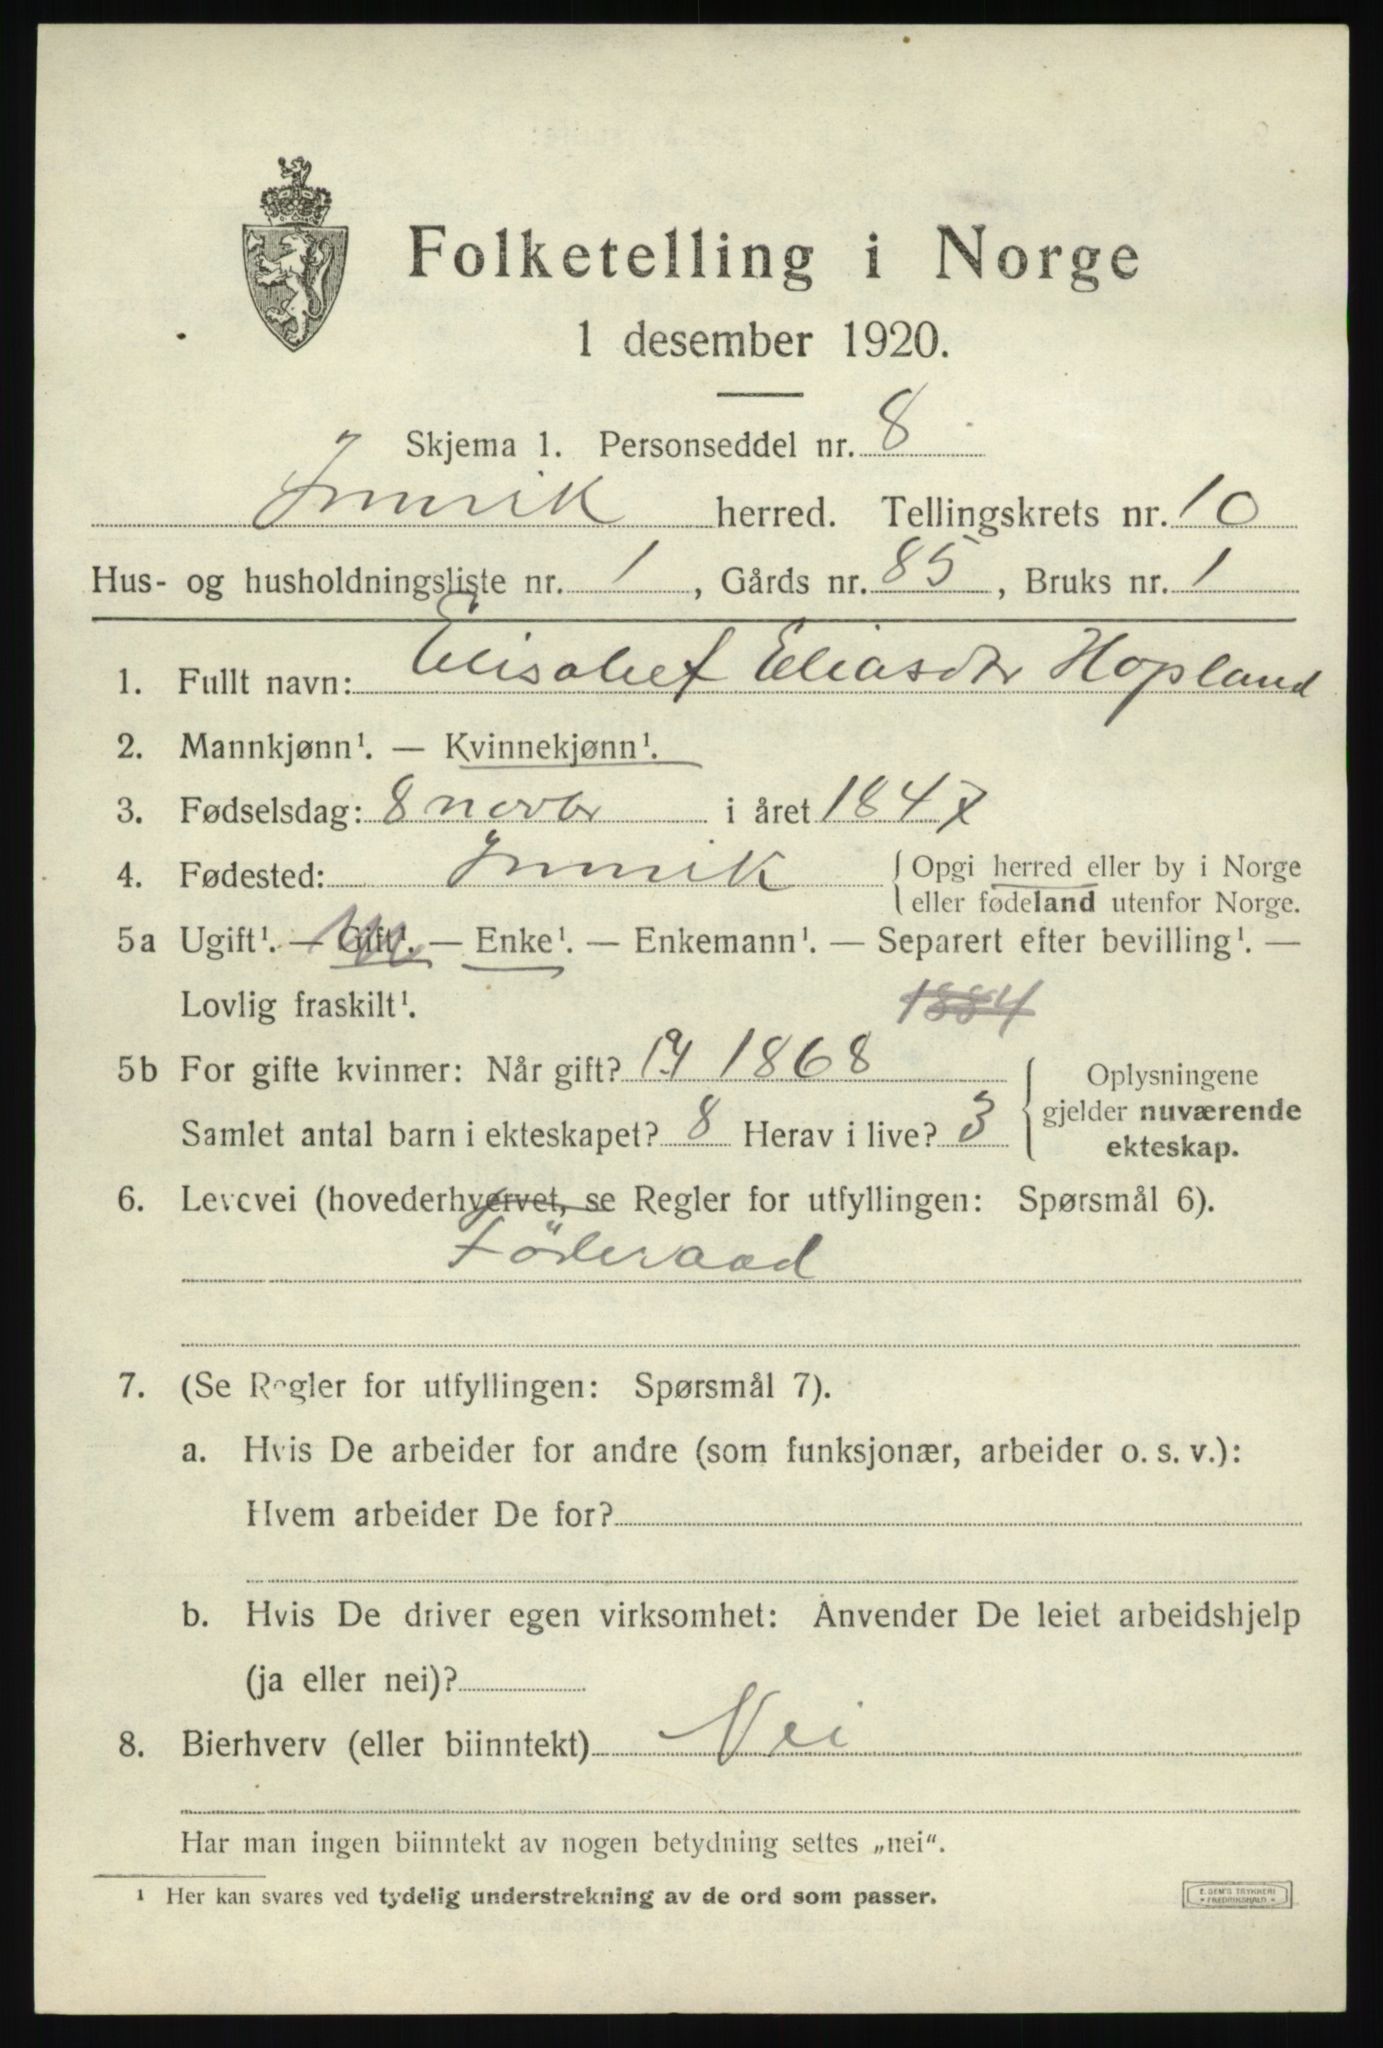 Folketelling i Norge
1 desember 1920.
Skjema 1. Personseddel nr. 8
Innvik herred. Tellingskrets nr. 10
Hus- og husholdningsliste nr. 1, Gårds nr. 85, Bruks nr. 1
1. Fullt navn: Elisabet Eliasdtr Hopland
2. Mannkjønn¹. — Kvinnekjønn¹.
3. Fødselsdag: 8 novbr i året 1847
4. Fødested: Innvik { Opgi herred eller by i Norge
eller fødeland utenfor Norge.
5a Ugift¹. — Gift¹. — Enke¹. — Enkemann¹. — Separert efter bevilling¹. —
Lovlig fraskilt¹. 1884
5b For gifte kvinner: Når gift? 1868
Samlet antal barn i ekteskapet? 8 Herav i live? 3
{ Oplysningene
gjelder nuværende
ekteskap.
6. Levevei (hovederhvervet, se Regler for utfyllingen: Spørsmål 6).
Föderaad
7. (Se Regler for utfyllingen: Spørsmål 7).
a. Hvis De arbeider for andre (som funksjonær, arbeider o. s. v.):
Hvem arbeider De for?
b. Hvis De driver egen virksomhet: Anvender De leiet arbeidshjelp
(ja eller nei)?
8. Bierhverv (eller biinntekt) Nei
Har man ingen biinntekt av nogen betydning settes „nei“.
¹ Her kan svares ved tydelig understrekning av de ord som passer.
E. SEM'S TRYKKERI
FREDRIKSHALD